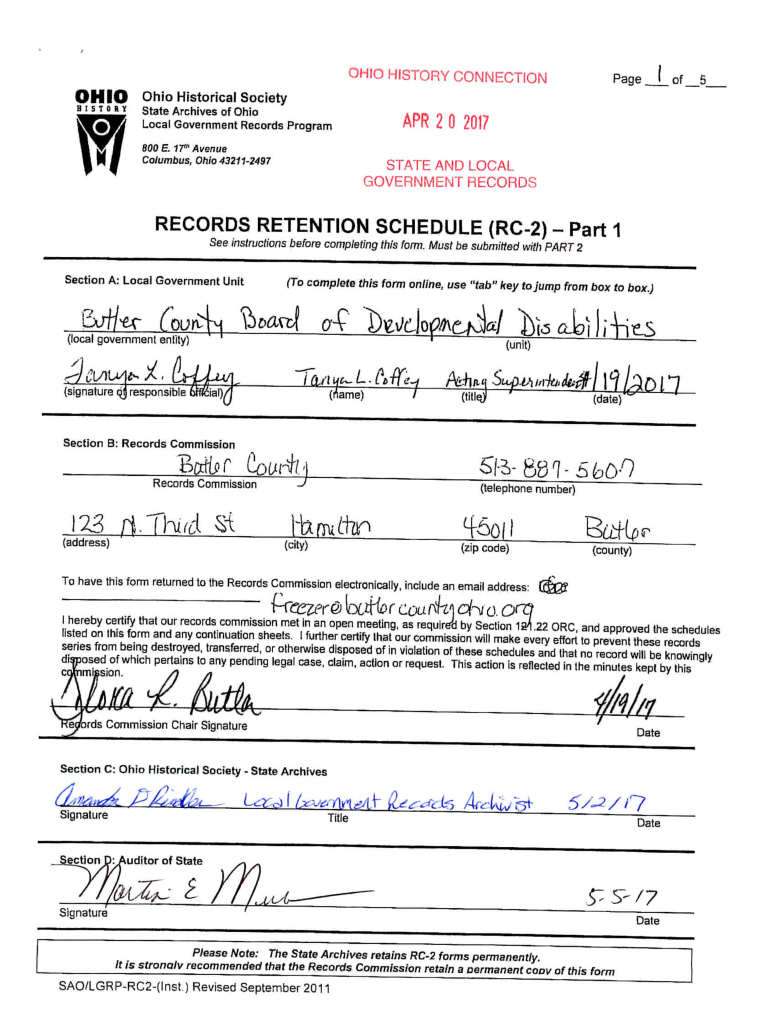 OHIO HISTORY CONNECTION
Page 1 of 5
OHIO
HISTORY
Ohio Historical Society
State Archives of Ohio
Local Government Records Program
800 E. 17th Avenue
Columbus, Ohio 43211-2497
APR 20 2017
STATE AND LOCAL
GOVERNMENT RECORDS
RECORDS RETENTION SCHEDULE (RC-2) – Part 1
See instructions before completing this form. Must be submitted with PART 2
Section A: Local Government Unit (To complete this form online, use "tab" key to jump from box to box.)
Butler County Board of Developmental Disabilities
(local government entity) (unit)
Tanya L. Coffey Tanya L. Coffey Acting Superintendent 4/19/2017
(signature of responsible official) (name) (title) (date)
Section B: Records Commission
Butler County 513-887-5607
Records Commission (telephone number)
123 N. Third St Hamilton 45011 Butler
(address) (city) (zip code) (county)
To have this form returned to the Records Commission electronically, include an email address:
freezer@butlercountyohio.org
I hereby certify that our records commission met in an open meeting, as required by Section 121.22 ORC, and approved the schedules
listed on this form and any continuation sheets. I further certify that our commission will make every effort to prevent these records
series from being destroyed, transferred, or otherwise disposed of in violation of these schedules and that no record will be knowingly
disposed of which pertains to any pending legal case, claim, action or request. This action is reflected in the minutes kept by this
commission.
R. Butler 4/19/17
Records Commission Chair Signature Date
Section C: Ohio Historical Society - State Archives
Amanda D Local Government Records Archivist 5/2/17
Signature Title Date
Section D: Auditor of State
Martin E 5-5-17
Signature Date
Please Note: The State Archives retains RC-2 forms permanently.
It is strongly recommended that the Records Commission retain a permanent copy of this form
SAO/LGRP-RC2-(Inst.) Revised September 2011